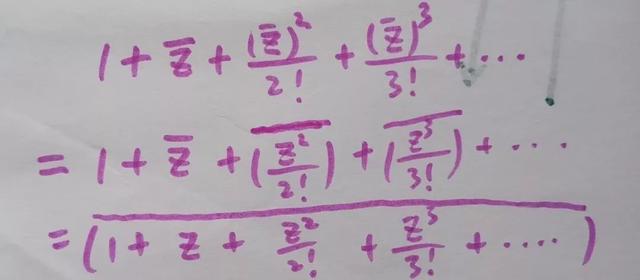 1 + z̅ + (z̅)²/2! + (z̅)³/3! + ...
= 1 + z̅ + \overline{(z²/2!)} + \overline{(z³/3!)} + ...
= \overline{(1 + z + z²/2! + z³/3! + ....)}